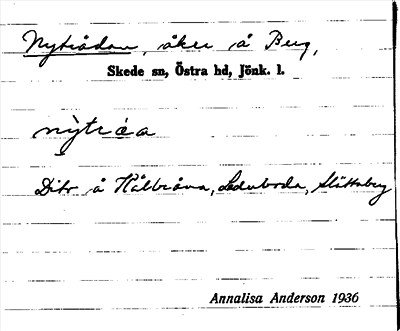 Nyträdan, åker å Berg,
Skede sn, Östra hd, Jönk. l.
nỳtràa
Dito å Kålbråna, Lederboda, Slättaberg
Annalisa Anderson 1936